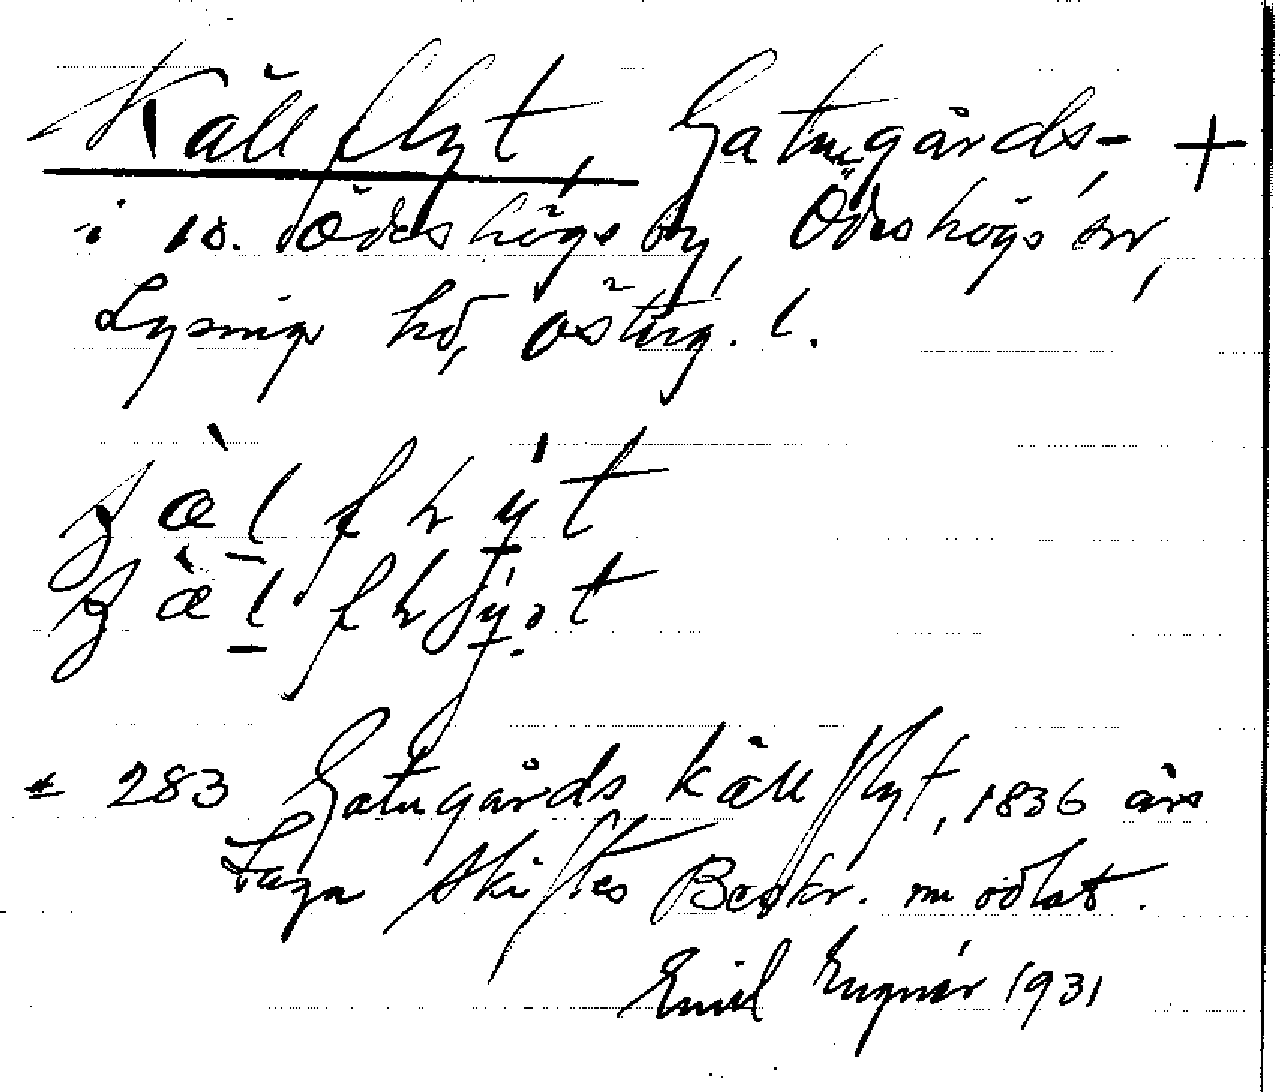 Källflyt, Gatugårds- +
i 10. Ödeshögs by, Ödeshögs sn,
Lysings hd, Östvg. l.
283 Gatugårds källflyt, 1836 års
Laga Skiftes Beskr. nu odlat.
Emil Engnér 1931